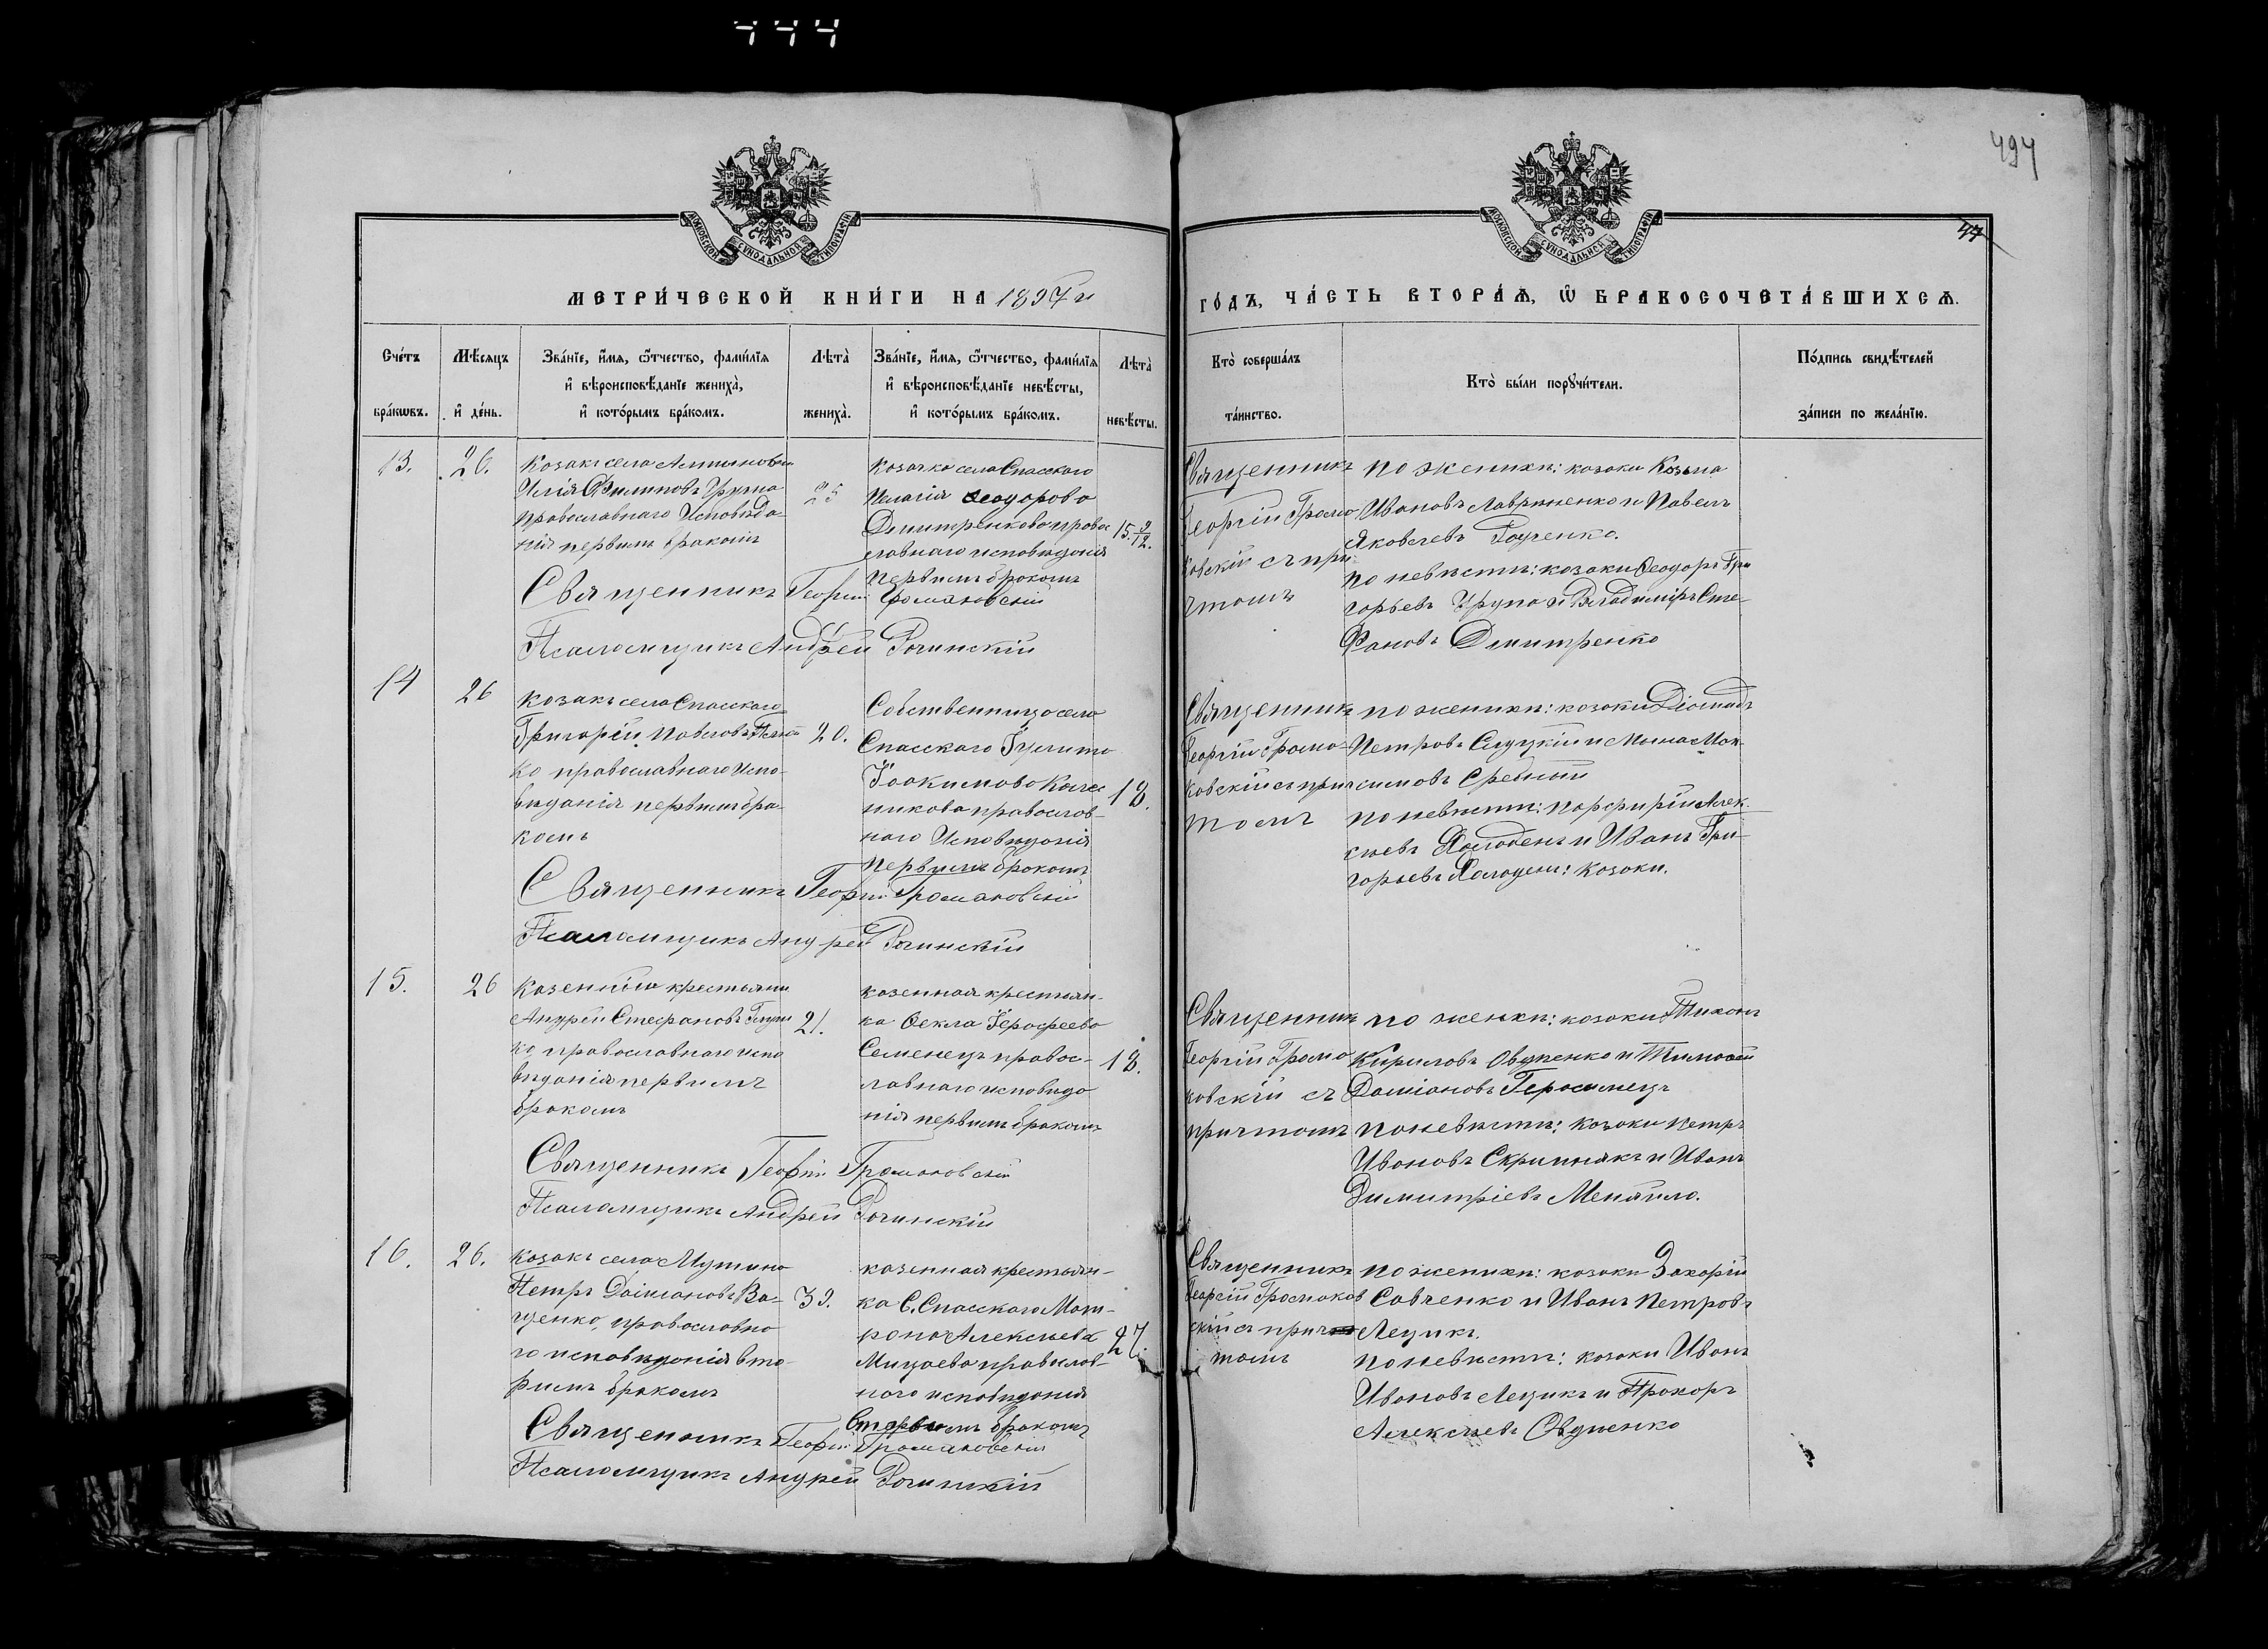 494
МОСКОВСКОЙ СѴНОДАЛЬНОЙ ТИПОГРАФІИ
МОСКОВСКОЙ СѴНОДАЛЬНОЙ ТИПОГРАФІИ
МЕТРИ́ЧЕСКОЙ КНИ́ГИ НА 1897 й
ГО́ДЪ, ЧА́СТЬ ВТОРА́Ѧ, Ѽ БРАКОСОЧЕТА́ВШИХСѦ.
Сче́тъ
бра́кѡвъ.
Мѣ́сяцъ
и҆ де́нь.
Зва́нїе, и҆́мя, ѻ҆́тчество, фами́лїя
и҆ вѣроисповѣ́данїе жениха̀,
и҆ кото́рымъ бра́комъ.
Лѣта̀
жениха̀.
Зва́нїе, и҆́мя, ѻ҆́тчество, фами́лїя
и҆ вѣроисповѣ́данїе невѣ́сты,
и҆ кото́рымъ бра́комъ.
Лѣта̀
невѣ́сты.
Кто̀ соверша́лъ
та́инство.
Кто̀ бы́ли порꙋчи́тели.
По́дпись свидѣ́телей
за́писи по жела́нїю.
13.
26.
Козакъ села
Илія Филиповъ Група
православнаго Исповѣда-
нія первымъ бракомъ
25
Козачка села Спасскаго
Пелагія Ѳеодорова
Дмитренкова правос
лавнаго исповѣданія
первымъ бракомъ
15 9/12.
Священникъ
Георгій Грома
ковскій съ при
чтомъ
по женихѣ: козаки Козьма
Ивановъ Лавриненко и Павелъ
Яковлевъ
по невѣстѣ: козаки Ѳеодоръ Гри
горьевъ Група и Владиміръ Сте-
фановъ Дмитренко
Священникъ Георгій Громаковскій
Псаломщикъ Андрей Рочинскій
14
26
Козакъ села Спасскаго
Григорій Павловъ
ко православнаго Испо-
вѣданія первымъ бра
комъ
20.
Собственница села
Спасскаго
Іоакимова
никова православ-
наго Исповѣданія
первымъ бракомъ
18.
Священникъ
Георгій Грома-
ковскій съ прич
томъ
по женихѣ: козаки Діомидъ
Петровъ Слуцкій и Мина Мак-
симовъ Средный
по невѣстѣ: Порфирій Алек-
сѣевъ Холодень и Иванъ Гри-
горьевъ Холодень: козаки.
Священникъ Георгій Громаковскій
Псаломщикъ Андрей Рочинскій
15.
26
Казенный крестьянин
Андрей Стефановъ
ко, православнаго испо
вѣданія первымъ
бракомъ
21.
казенная крестьян-
ка Ѳекла Іерофеева
Семенецъ правос-
лавнаго исповѣда
нія первымъ бракомъ
18.
Священник
Георгій Грома
ковскій съ
причтомъ
по женихѣ: козаки Тихонъ
Кириловъ Овдіенко и Тимоѳей
Даміановъ Герасимецъ
по невѣстѣ: козаки Петръ
Ивановъ Скрипнякъ и Иванъ
Димитріевъ Меняйло.
Священникъ Георгій Громаковскій
Псаломщикъ Андрей Рочинскій
16.
26.
Козакъ села Мутина
Петръ Даміановъ Ва-
щенко, православна
го исповѣданія вто-
рымъ бракомъ
39.
казенная крестьян-
ка С. Спасскаго Мат-
рона Алексѣева
православ-
наго исповѣданія
вторымъ бракомъ
27.
Священникъ
Георгій Громаков
скій съ прич
томъ
по женихѣ: козаки Захарій
Савченко и Иванъ Петровъ
Лещикъ.
по невѣстѣ: козаки Иванъ
Ивановъ Лещикъ и Прохоръ
Алексѣевъ Овдіенко
Священникъ Георгій Громаковскій
Псаломщикъ Андрей Рочинскій